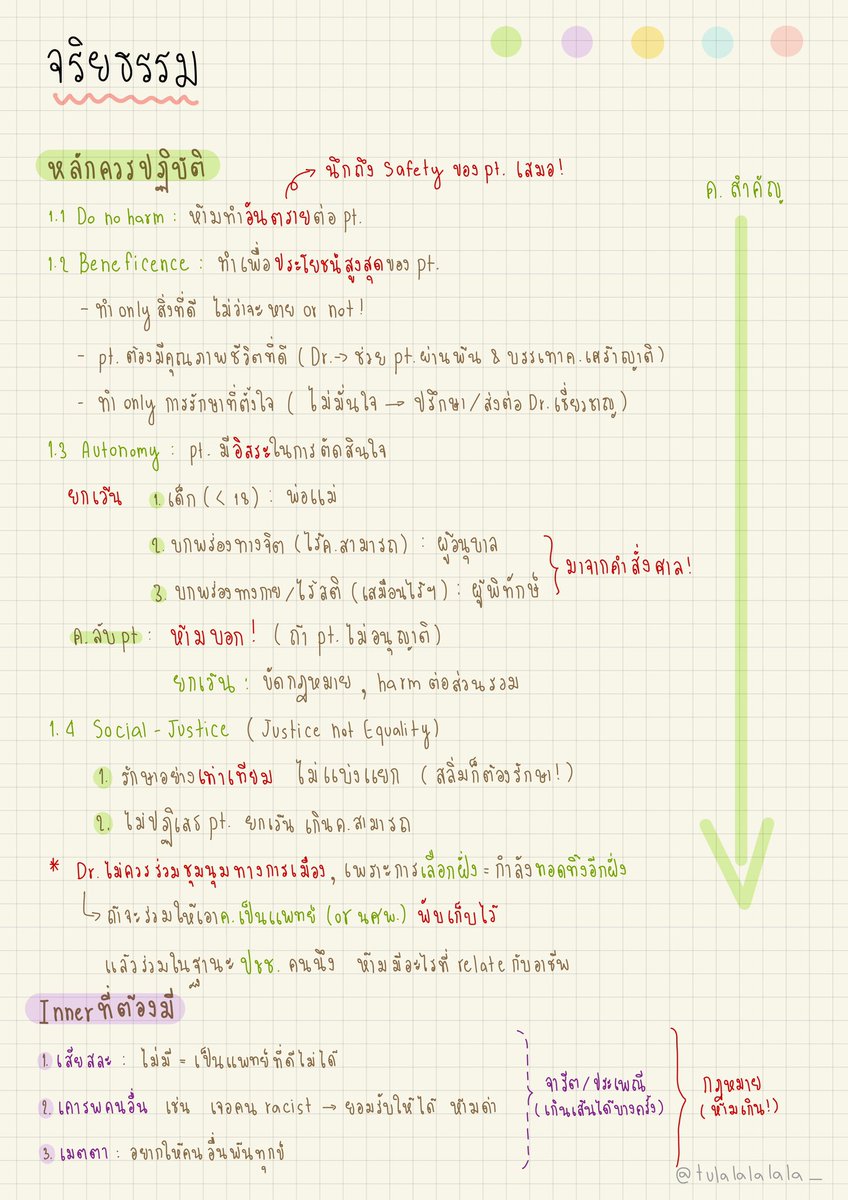 จริยธรรม
หลักควรปฏิบัติ
นึกถึง Safety ของ pt. เสมอ!
ค. สำคัญ
1.1 Do no harm : ห้ามทำอันตรายต่อ pt.
1.2 Beneficence : ทำเพื่อประโยชน์สูงสุดของ pt.
- ทำ only สิ่งที่ดี ไม่ว่าจะหาย or not!
- pt. ต้องมีคุณภาพชีวิตที่ดี (Dr.→ ช่วย pt. ผ่านพ้น & บรรเทาค.เศร้าญาติ)
- ทำ only การรักษาที่ตั้งใจ ( ไม่มั่นใจ → ปรึกษา/ส่งต่อ Dr. เชี่ยวชาญ)
1.3 Autonomy : pt. มีอิสระในการตัดสินใจ
ยกเว้น 1. เด็ก (< 18) : พ่อแม่
2. บกพร่องทางจิต (ไร้ค.สามารถ) : ผู้อนุบาล
3. บกพร่องทางกาย/ไร้สติ (เสมือนไร้ฯ) : ผู้พิทักษ์
มาจากคำสั่งศาล!
ค.ลับ pt : ห้ามบอก! ( ถ้า pt. ไม่อนุญาติ)
ยกเว้น : ขัดกฎหมาย , harm ต่อส่วนรวม
1.4 Social - Justice ( Justice not Equality)
1. รักษาอย่างเท่าเทียม ไม่แบ่งแยก ( สลิ่มก็ต้องรักษา!)
2. ไม่ปฏิเสธ pt. ยกเว้น เกินค.สามารถ
* Dr. ไม่ควรร่วมชุมนุมทางการเมือง, เพราะการเลือกฝั่ง = กำลังทอดทิ้งอีกฝั่ง
ถ้าจะร่วมให้เอาค.เป็นแพทย์ (or นศพ.) พับเก็บไว้
แล้วร่วมในฐานะ ปชช. คนนึง ห้ามมีอะไรที่ relate กับอาชีพ
Inner ที่ต้องมี
1. เสียสละ : ไม่มี = เป็นแพทย์ที่ดีไม่ได้
2. เคารพคนอื่น เช่น เจอคน racist → ยอมรับให้ได้ ห้ามด่า
3. เมตตา : อยากให้คนอื่นพ้นทุกข์
จารีต/ประเพณี
(เกินเส้นได้บางครั้ง)
กฎหมาย
(ห้ามเกิน!)
@tulalalalala_